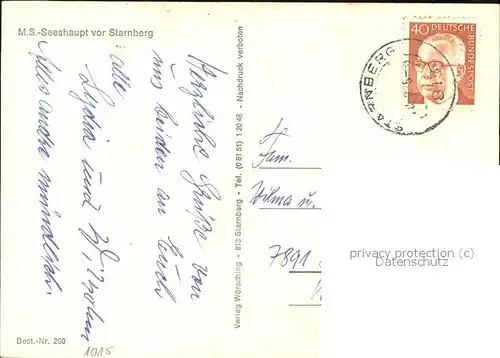 M.S.-Seeshaupt vor Starnberg
Herzliche Grüße von
uns beiden an Euch
alle
Lydia und
Alles andre mündlich.
Verlag Wörsching - 813 Starnberg - Tel. (08151) 12048 - Nachdruck verboten
40 DEUTSCHE BUNDESPOST
STARNBERG
Fam.
Wilma u.
7891
privacy protection (c)
Datenschutz
Best.-Nr. 260
1015